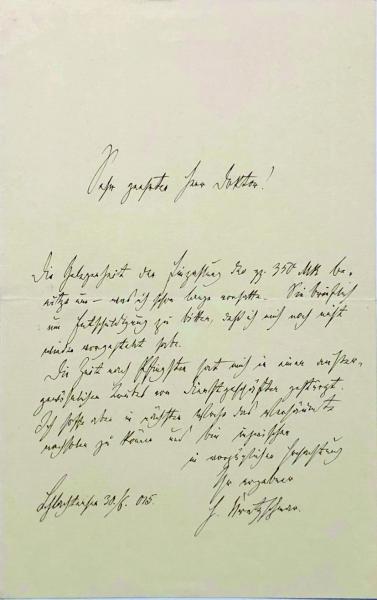 Sehr geehrter Herr Doktor!
Die Gelegenheit der Einzahlung der gg. 350 Mk be-
nütze um – was ich schon lange vorhatte – Sie brieflich
um Entschuldigung zu bitten, daß ich mich noch nicht
wieder vorgestellt habe.
Die Zeit nach Pfingsten hat mich in einen außer-
gewöhnlichen von Dienstgeschäften gestürzt.
Ich hoffe aber in nächster Woche das Versäumte
nachholen zu können und bin inzwischen
in vorzüglicher Hochachtung
Ihr ergebener
H. Kretzschmar.
Schlachtensee 30. 05.